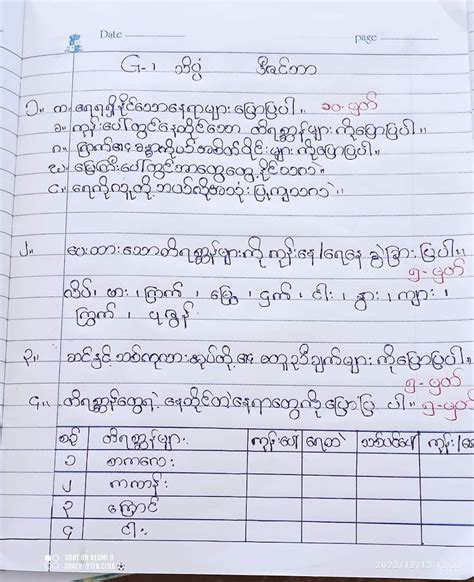 Date
page
G-1 သိပ္ပံ ဒီဇင်ဘာ
၁။ က။ ရေရရှိနိုင်သောနေရာများပြောပြပါ။ ၁၀-မှတ်
ခ။ ကုန်းပေါ်တွင်နေထိုင်သော တိရစ္ဆာန်များကိုပြောပြပါ။
ဂ။ ကြက်၏ခန္ဓာကိုယ်အစိတ်ပိုင်းများကိုပြောပြပါ။
ဃ။ မြေကြီးပေါ်တွင်ဘာတွေတွေ့နိုင်သလဲ။
င။ ရေကိုလူတို့ဘယ်လိုအသုံးပြုကြသလဲ။
၂။ ပေးထားသောတိရစ္ဆာန်များကို ကုန်းနေ/ရေနေ ခွဲခြားပြပါ။
၅-မှတ်
လိပ်၊ ဖား၊ ကြက်၊ မြွေ၊ ငှက်၊ ငါး၊ နွား၊ ကျား၊
ကြွက်၊ ပုဇွန်
၃။ ဆင်နှင့်ဘတ်စကားတို့၏ တူညီချက်များကိုပြောပြပါ။
၅-မှတ်
၄။ တိရစ္ဆာန်တွေရဲ့ နေထိုင်တဲ့နေရာတွေကိုပြောပြပါ။ ၅-မှတ်
စဉ် တိရစ္ဆာန်များ ကုန်းပေါ် ရေထဲ သစ်ပင်ပေါ် ကုန်း/ရေ
၁ စာကလေး
၂ ကကာန်း
၃ ကြောင်
၄ ငါး
SHOT ON REDMI 9
COACH-YTEB CLUB
2022/12/13 13:30